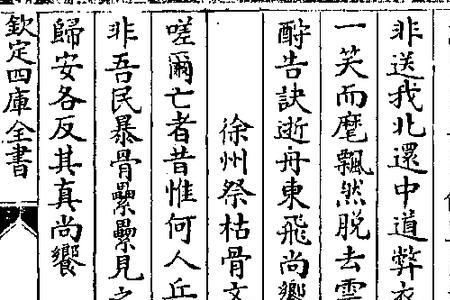 非送我北還中道弊衣
一笑而麾飄然脫去雲
酹告訣逝舟東飛尚饗
徐州祭枯骨文
嗟爾亡者昔惟何人丘
非吾民暴骨纍纍見之
歸安各反其真尚饗
欽定四庫全書